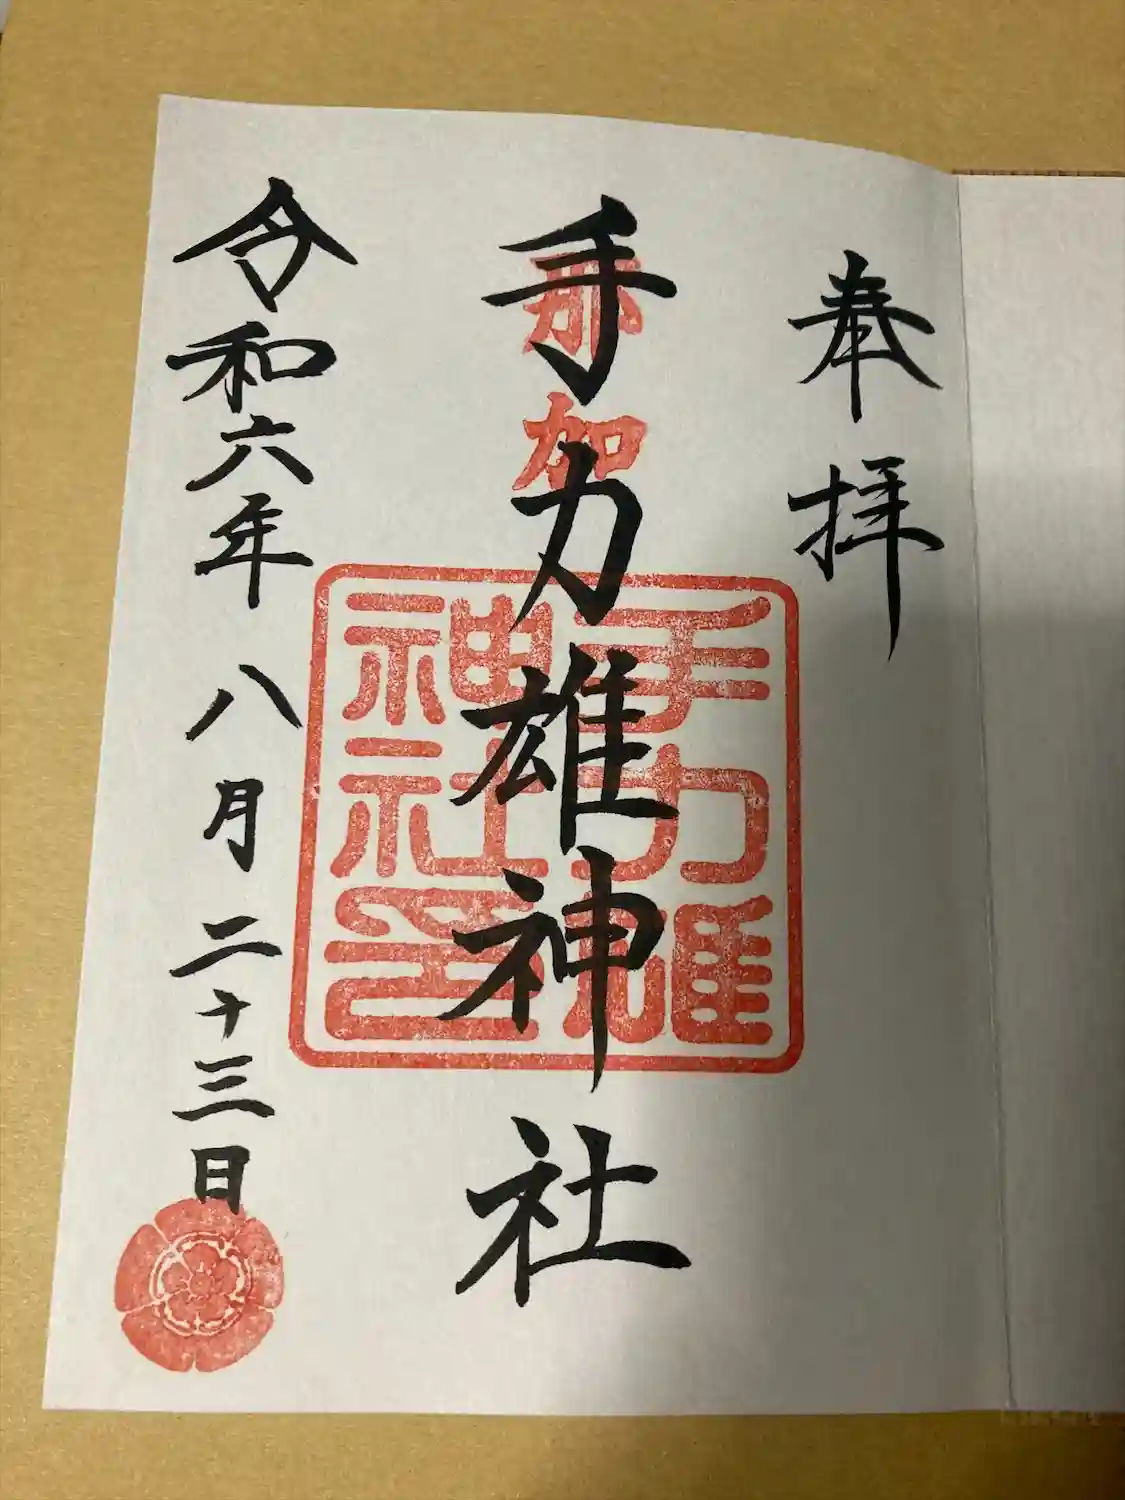 奉拝
那賀
手力雄神社
手力雄
神社印
令和六年八月二十三日